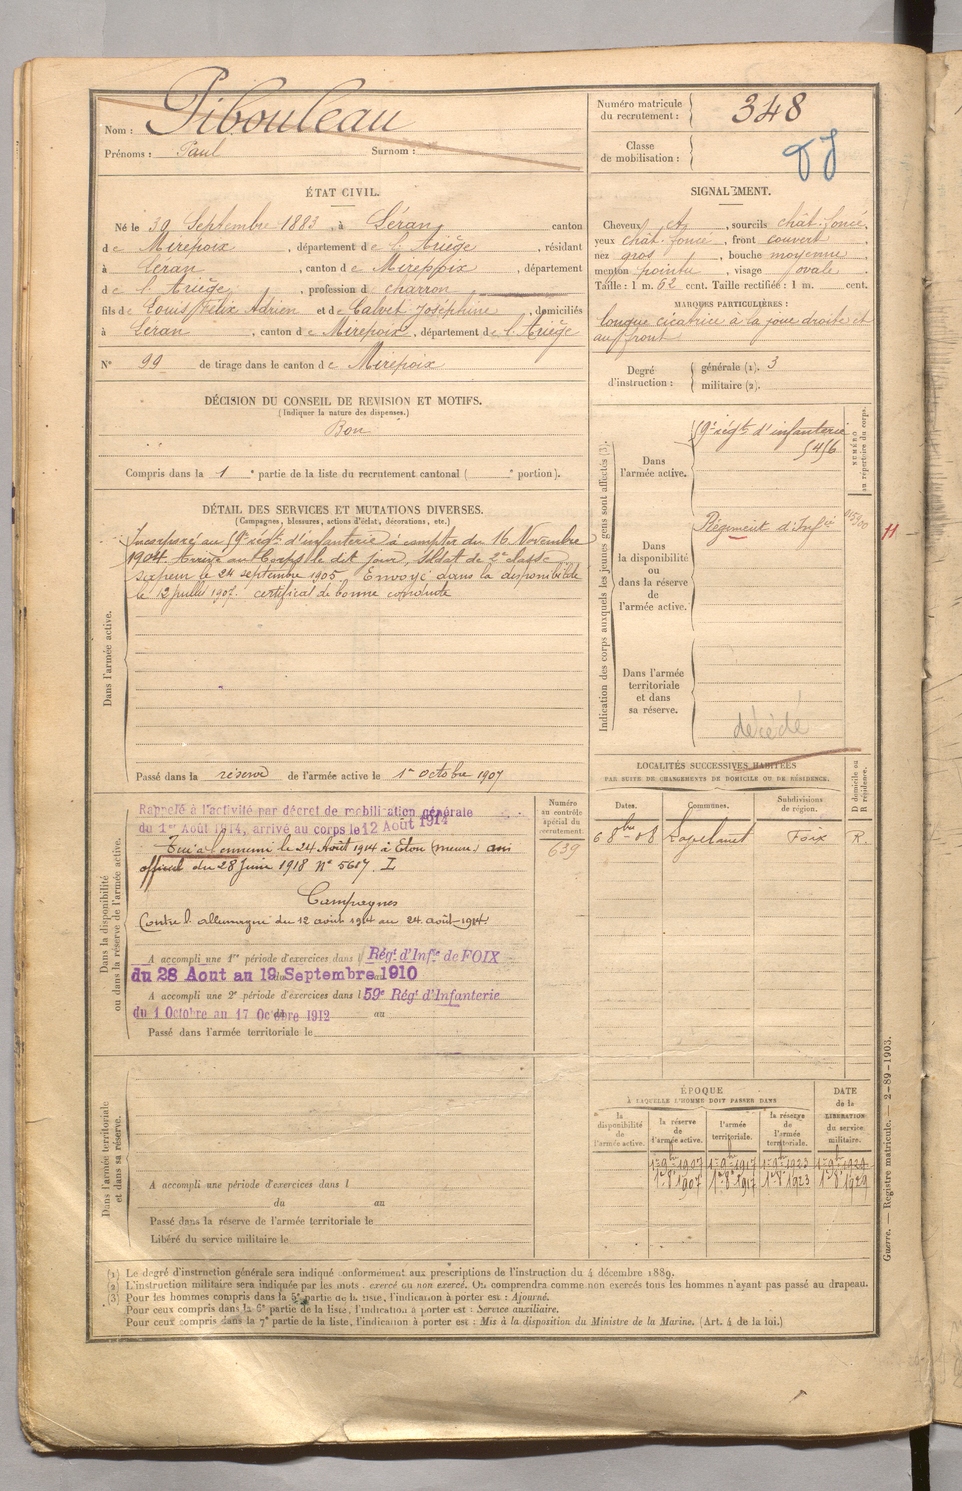 Nom : Pibouleau
Prénoms : Paul Surnom :
Numéro matricule du recrutement : 348
Classe de mobilisation :
ÉTAT CIVIL.
Né le 30 Septembre 1883, à Léran, canton
de Mirepoix, département de l'Ariège, résidant
à Léran, canton de Mirepoix, département
de l'Ariège, profession de charron
fils de Louis Félix Adrien et de Calvet Joséphine, domiciliés
à Léran, canton de Mirepoix, département de l'Ariège
N° 99 de tirage dans le canton de Mirepoix
SIGNALEMENT.
Cheveux, sourcils chât. foncé,
yeux chât. foncé, front couvert,
nez gros, bouche moyenne,
menton pointu, visage ovale.
Taille : 1 m. 62 cent. Taille rectifiée : 1 m. cent.
MARQUES PARTICULIÈRES :
longue cicatrice à la joue droite et
au front
Degré d'instruction : générale (1). 3
militaire (2).
DÉCISION DU CONSEIL DE REVISION ET MOTIFS.
(Indiquer la nature des dispenses.)
Bon
Compris dans la 1e partie de la liste du recrutement cantonal ( e portion).
DÉTAIL DES SERVICES ET MUTATIONS DIVERSES.
(Campagnes, blessures, actions d'éclat, décorations, etc.)
Dans l'armée active.
Incorporé au 9e régt d'infanterie à compter du 16 Novembre
1904. Arrivé au Corps le dit jour, soldat de 2e classe
sapeur le 24 septembre 1905. Envoyé dans la disponibilité
le 12 juillet 1907. certificat de bonne conduite
Passé dans la réserve de l'armée active le 1er octobre 1907
Indication des corps auxquels les jeunes gens sont affectés (3).
NUMÉRO au répertoire du corps.
Dans l'armée active.
9e régt d'infanterie
5456
Dans la disponibilité ou dans la réserve de l'armée active.
Régiment d'Infie
11
Dans l'armée territoriale et dans sa réserve.
décédé
LOCALITÉS SUCCESSIVES HABITÉES
PAR SUITE DE CHANGEMENTS DE DOMICILE OU DE RÉSIDENCE.
D domicile ou R résidence.
Dates. Communes. Subdivisions de région.
6 8bre 08 Foix R.
Dans la disponibilité ou dans la réserve de l'armée active.
Numéro au contrôle spécial du recrutement.
639
Rappelé à l'activité par décret de mobilisation générale
du 1er Août 1914, arrivé au corps le 12 Août 1914
Tué à l'ennemi le 24 Août 1914 à Eton (meuse) avis
officiel du 28 Juin 1918 N° 5617. I
Campagnes
Contre l'allemagne du 12 août 1914 au 24 août 1914
A accompli une 1re période d'exercices dans l Régt d'Infie de FOIX
du 28 Aout au 19 Septembre 1910
A accompli une 2e période d'exercices dans l 59e Régt d'Infanterie
du 1 Octobre au 17 Octobre 1912 au
Passé dans l'armée territoriale le
Dans l'armée territoriale et dans sa réserve.
A accompli une période d'exercices dans l
du au
Passé dans la réserve de l'armée territoriale le
Libéré du service militaire le
ÉPOQUE
À LAQUELLE L'HOMME DOIT PASSER DANS
DATE de la LIBÉRATION du service militaire.
la disponibilité de l'armée active. la réserve de l'armée active. l'armée territoriale. la réserve de l'armée territoriale.
1er 9bre 1907 1er 9bre 1917 1er 9bre 1923 1er 9bre 1929
1er 8bre 1907 1er 8bre 1917 1er 8bre 1923 1er 8bre 1929
(1) Le degré d'instruction générale sera indiqué conformément aux prescriptions de l'instruction du 4 décembre 1889.
(2) L'instruction militaire sera indiquée par les mots : exercé ou non exercé. On comprendra comme non exercés tous les hommes n'ayant pas passé au drapeau.
(3) Pour les hommes compris dans la 5e partie de la liste, l'indication à porter est : Ajourné.
Pour ceux compris dans la 6e partie de la liste, l'indication à porter est : Service auxiliaire.
Pour ceux compris dans la 7e partie de la liste, l'indication à porter est : Mis à la disposition du Ministre de la Marine. (Art. 4 de la loi.)
Guerre. — Registre matricule. — 2-89-1903.